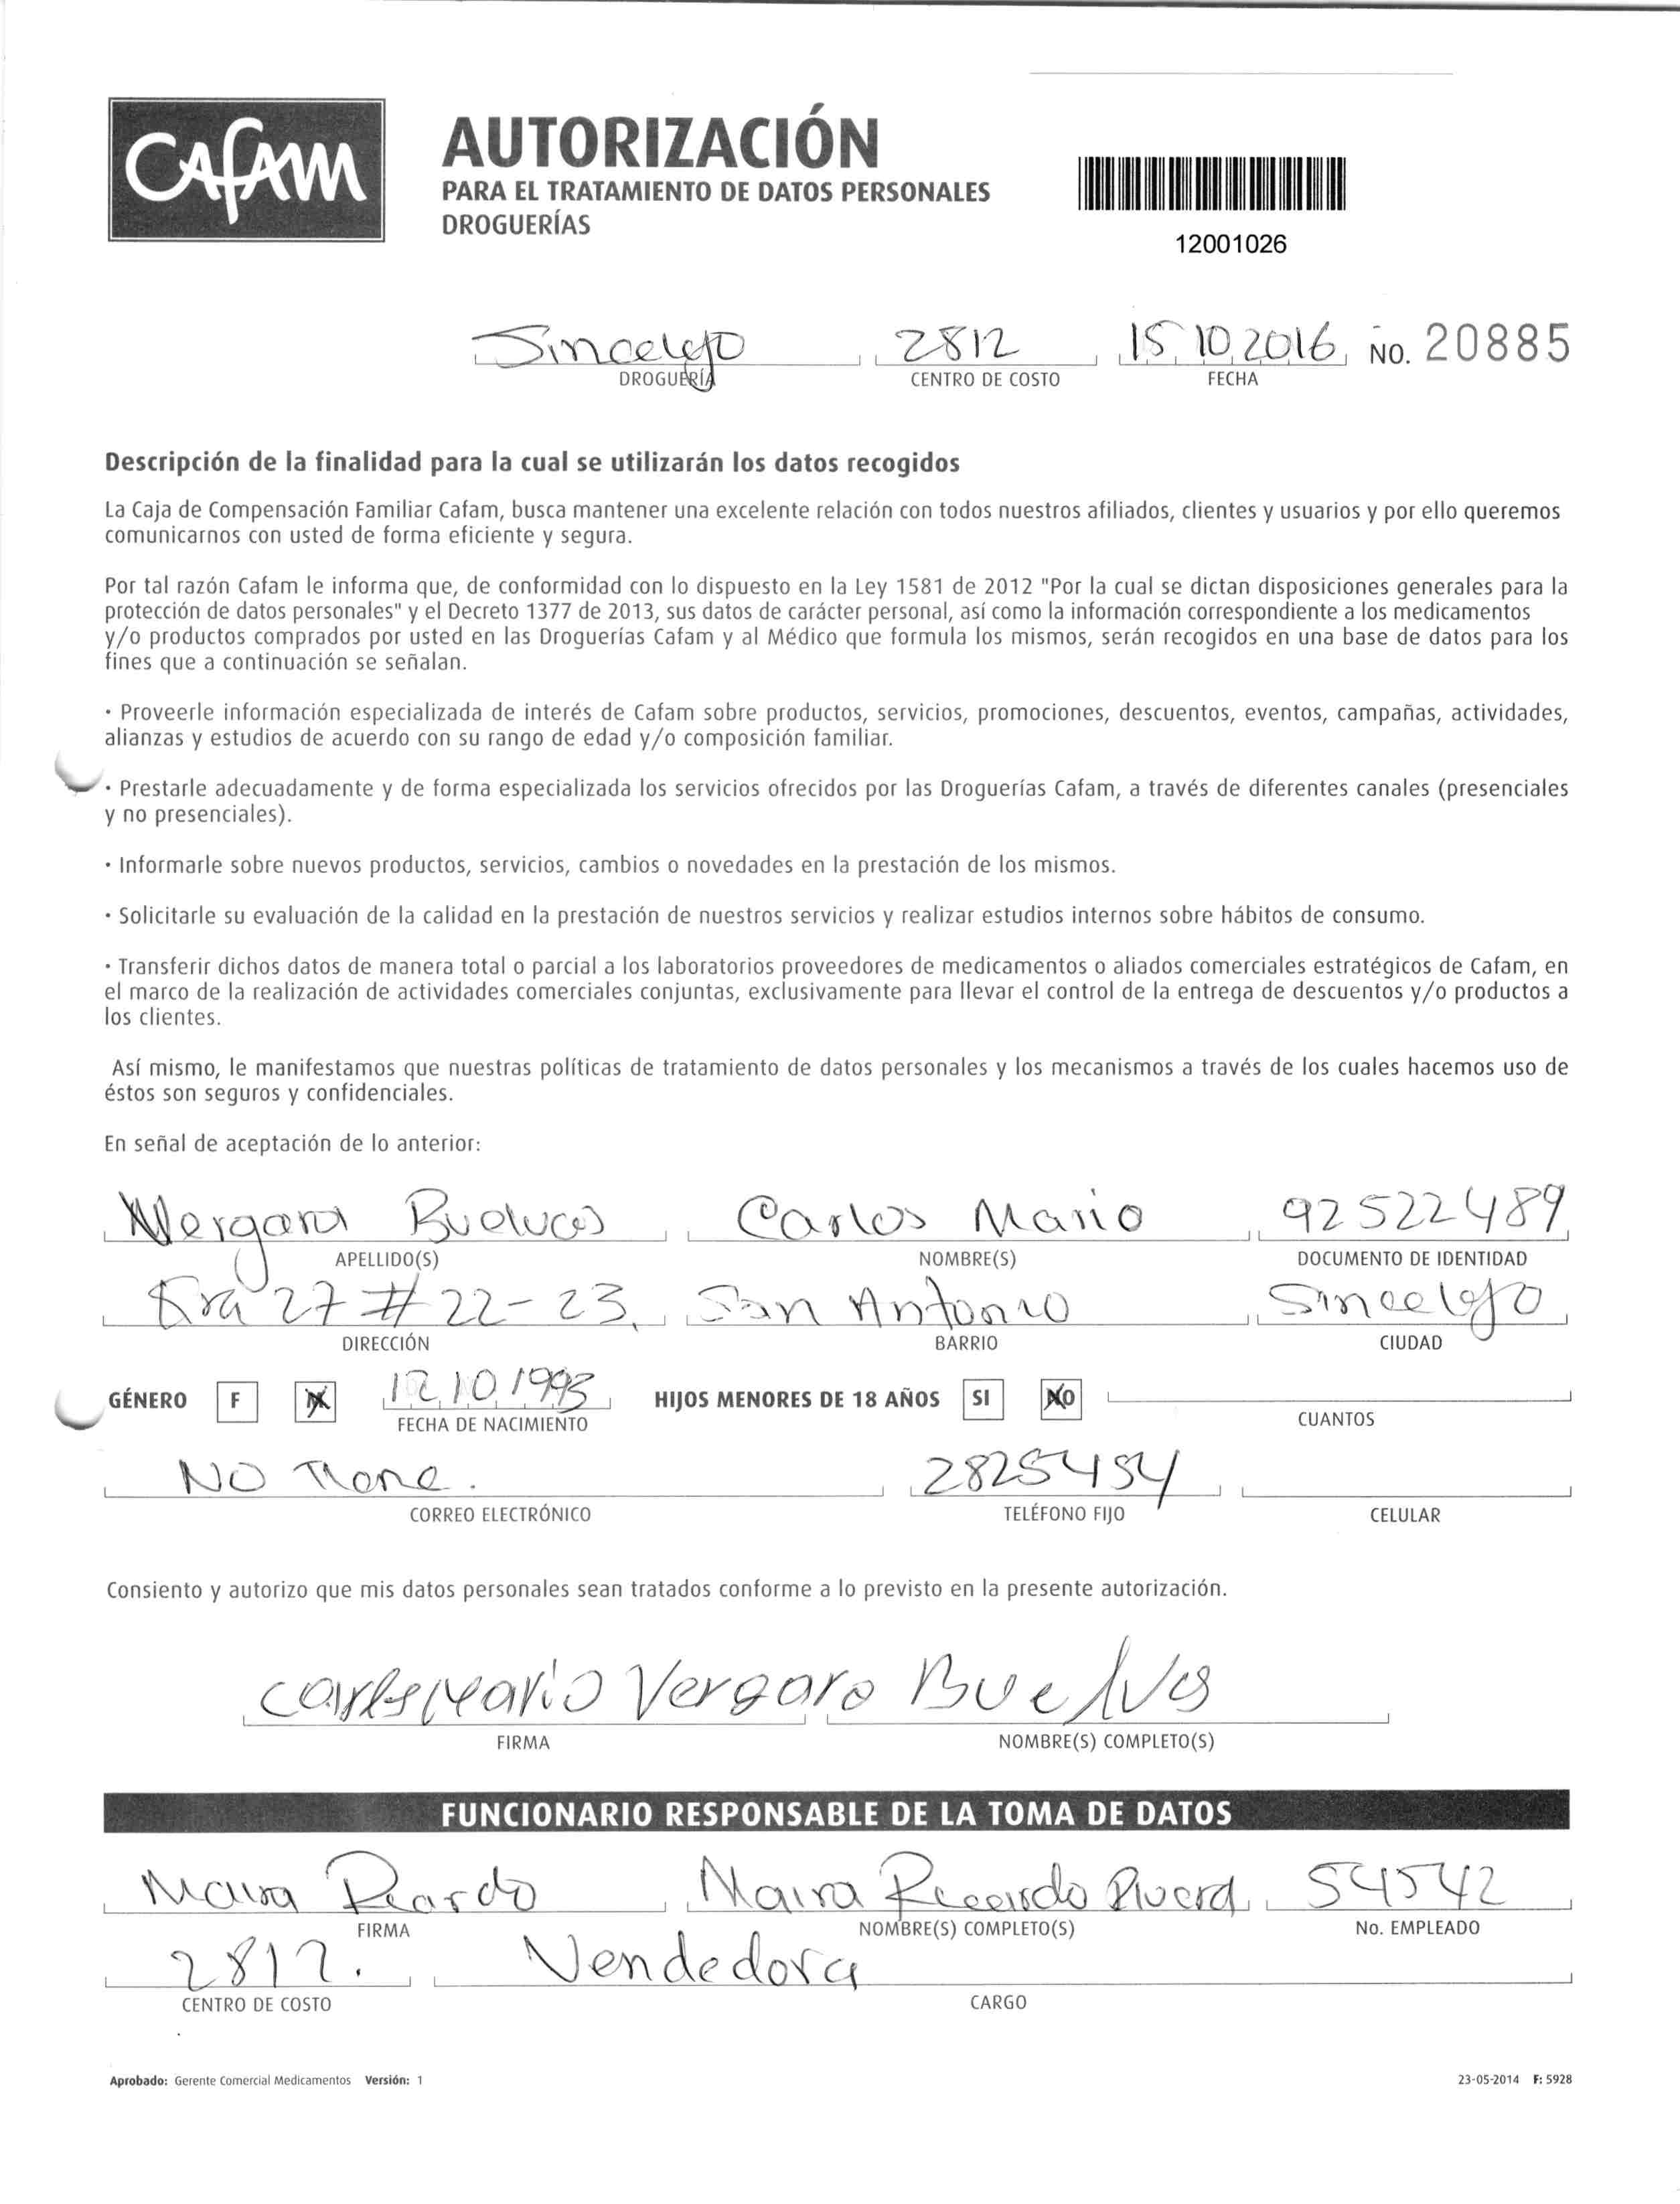 CAFAM
AUTORIZACIÓN
PARA EL TRATAMIENTO DE DATOS PERSONALES
DROGUERÍAS
12001026
Sincelejo 2812 15 10 2016 No. 20885
DROGUERÍA CENTRO DE COSTO FECHA
Descripción de la finalidad para la cual se utilizarán los datos recogidos
La Caja de Compensación Familiar Cafam, busca mantener una excelente relación con todos nuestros afiliados, clientes y usuarios y por ello queremos
comunicarnos con usted de forma eficiente y segura.
Por tal razón Cafam le informa que, de conformidad con lo dispuesto en la Ley 1581 de 2012 "Por la cual se dictan disposiciones generales para la
protección de datos personales" y el Decreto 1377 de 2013, sus datos de carácter personal, así como la información correspondiente a los medicamentos
y/o productos comprados por usted en las Droguerías Cafam y al Médico que formula los mismos, serán recogidos en una base de datos para los
fines que a continuación se señalan.
· Proveerle información especializada de interés de Cafam sobre productos, servicios, promociones, descuentos, eventos, campañas, actividades,
alianzas y estudios de acuerdo con su rango de edad y/o composición familiar.
· Prestarle adecuadamente y de forma especializada los servicios ofrecidos por las Droguerías Cafam, a través de diferentes canales (presenciales
y no presenciales).
· Informarle sobre nuevos productos, servicios, cambios o novedades en la prestación de los mismos.
· Solicitarle su evaluación de la calidad en la prestación de nuestros servicios y realizar estudios internos sobre hábitos de consumo.
· Transferir dichos datos de manera total o parcial a los laboratorios proveedores de medicamentos o aliados comerciales estratégicos de Cafam, en
el marco de la realización de actividades comerciales conjuntas, exclusivamente para llevar el control de la entrega de descuentos y/o productos a
los clientes.
Así mismo, le manifestamos que nuestras políticas de tratamiento de datos personales y los mecanismos a través de los cuales hacemos uso de
éstos son seguros y confidenciales.
En señal de aceptación de lo anterior:
Vergara Buelvas Carlos Mario 92522489
APELLIDO(S) NOMBRE(S) DOCUMENTO DE IDENTIDAD
Kra 27 # 22-23. San Antonio Sincelejo
DIRECCIÓN BARRIO CIUDAD
GÉNERO F M 12 10 1993 HIJOS MENORES DE 18 AÑOS SI NO
FECHA DE NACIMIENTO CUANTOS
NO Tiene. 2825454
CORREO ELECTRÓNICO TELÉFONO FIJO CELULAR
Consiento y autorizo que mis datos personales sean tratados conforme a lo previsto en la presente autorización.
Carlos Mario Vergara Buelvas
FIRMA NOMBRE(S) COMPLETO(S)
FUNCIONARIO RESPONSABLE DE LA TOMA DE DATOS
Maira Ricardo Maira Ricardo Rivera 54542
FIRMA NOMBRE(S) COMPLETO(S) No. EMPLEADO
2812. Vendedora
CENTRO DE COSTO CARGO
Aprobado: Gerente Comercial Medicamentos Versión: 1 23-05-2014 F: 5928